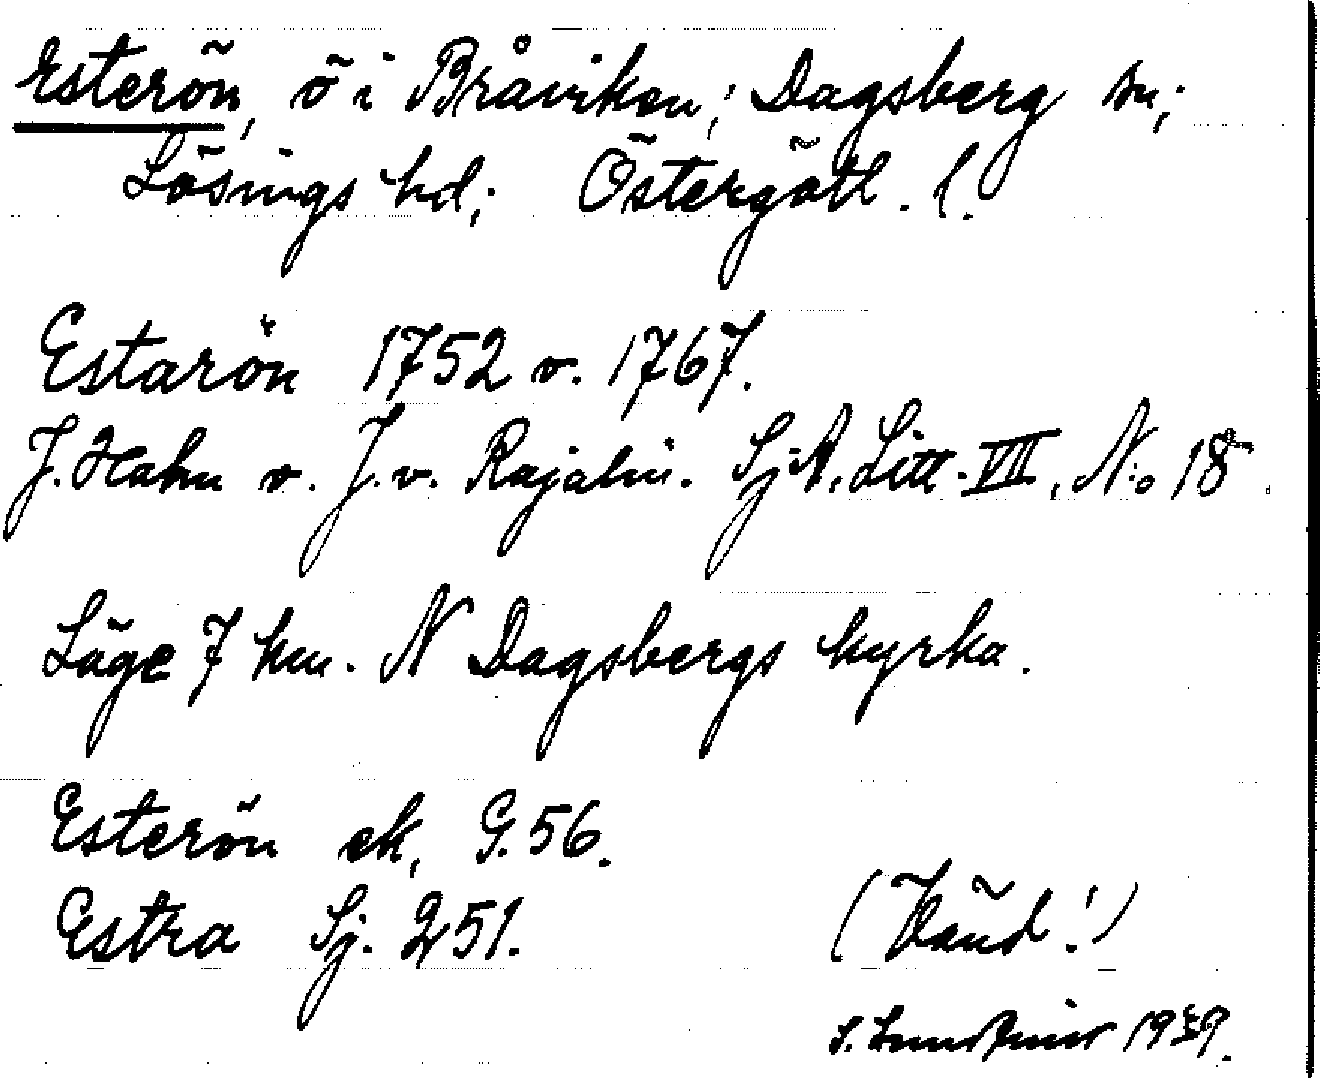 Esterön, ö i Bråviken; Dagsberg sn;
Lösings hd; Östergötl. l.
Estarön 1752 o. 1767.
J. Hahn o. J. v. Rajalin. Sj.A. Litt. VII. N:o 18.
Läge 7 km. N Dagsbergs kyrka.
Esterön ek. G. 56.
Estra Sj. 251.
(Vänd!)
S. 1939.